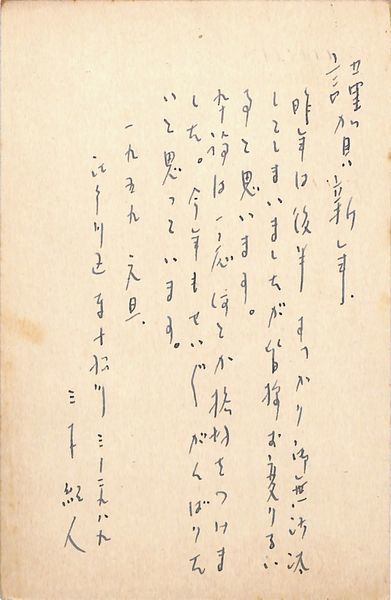 謹賀新年.
昨年は後半すっかり御無沙汰
してしまいましたが皆様お変りない
事と思います。
卒論は一応ほとか格好をつけま
した。今年もせいぐがんばりた
いと思っています。
一九五九 元旦.
江戸川区東小松川 三ー二九八九
三下 紀人